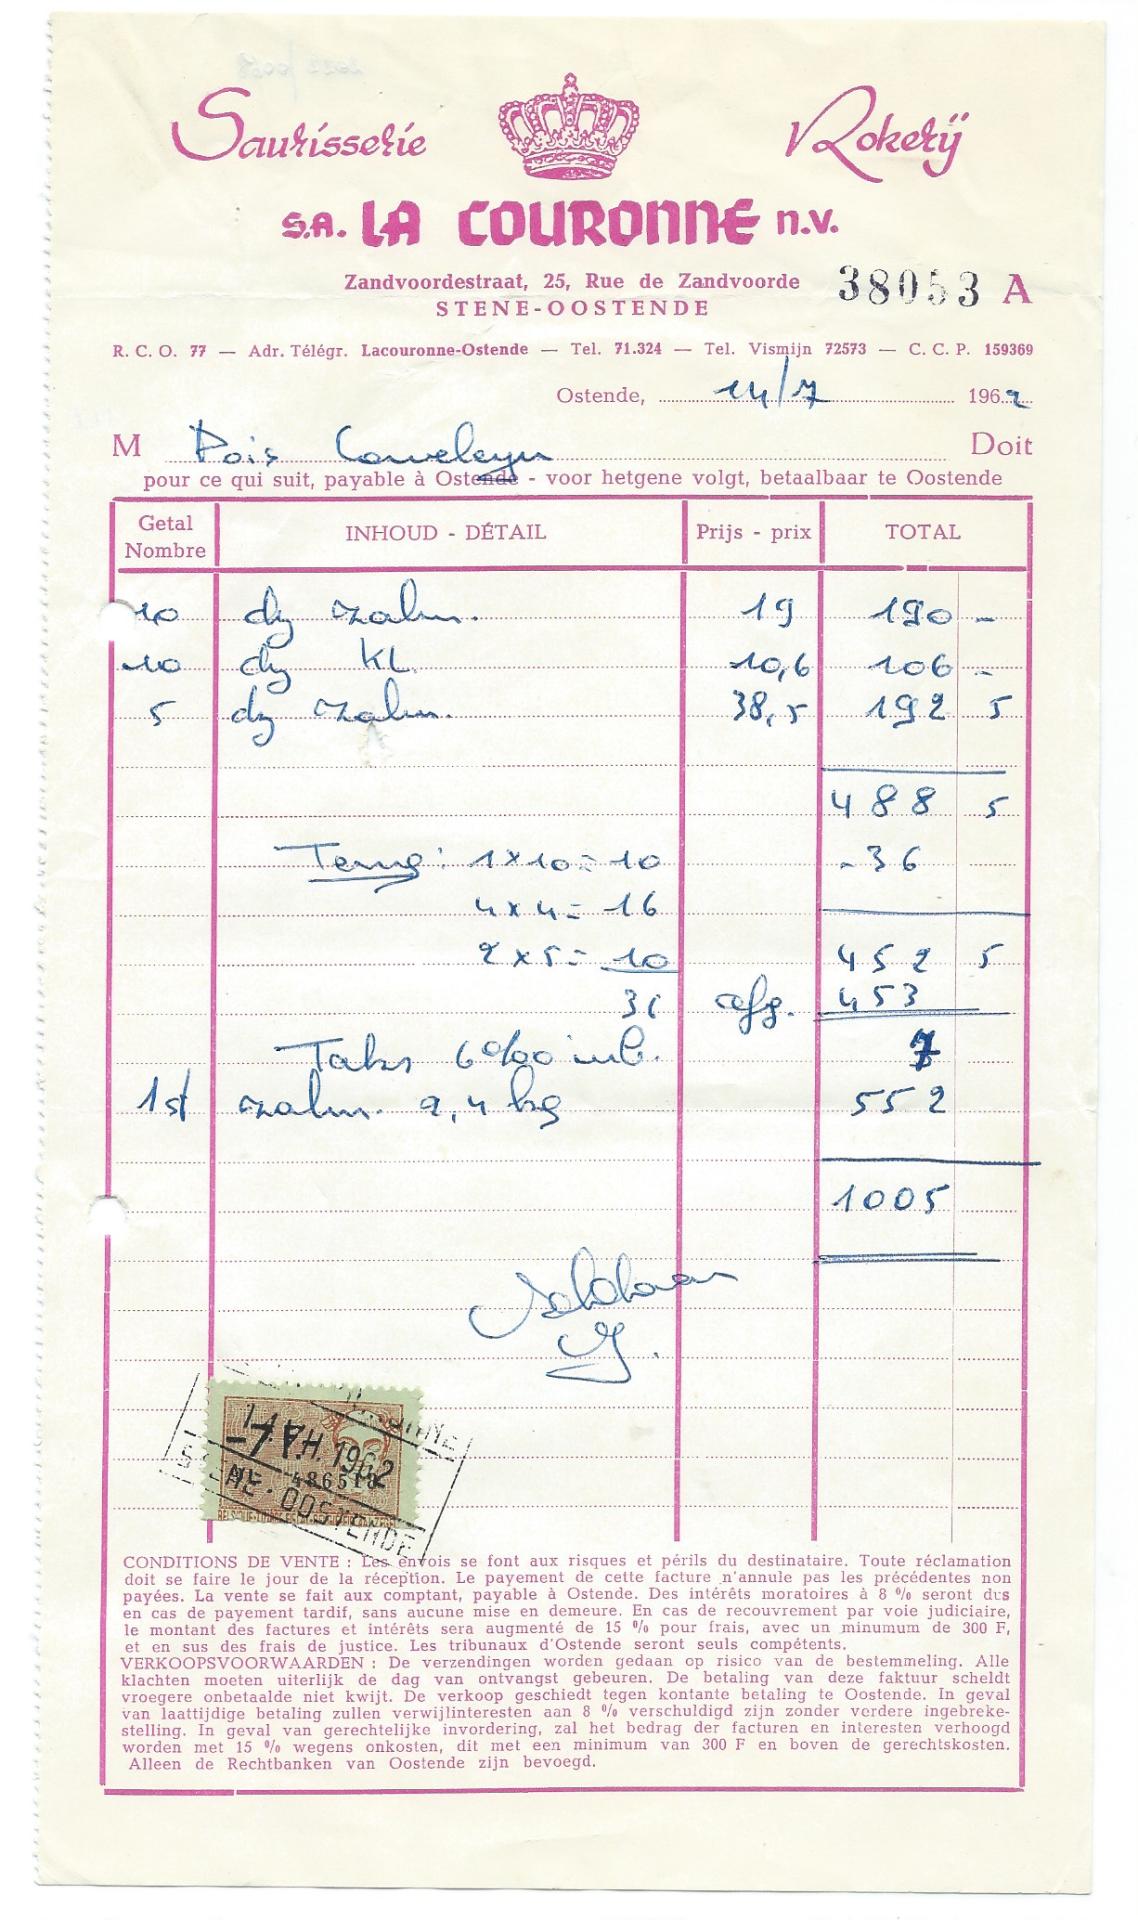 Saurisserie Rokerij
S.A. LA COURONNE N.V.
Zandvoordestraat, 25, Rue de Zandvoorde 38053 A
STENE-OOSTENDE
R. C. O. 77 — Adr. Télégr. Lacouronne-Ostende — Tel. 71.324 — Tel. Vismijn 72573 — C. C. P. 159369
Ostende, 14/7 1962
M Pois Couveleyn Doit
pour ce qui suit, payable à Ostende - voor hetgene volgt, betaalbaar te Oostende
Getal Nombre INHOUD - DÉTAIL Prijs - prix TOTAL
10 dz zalm. 19 190 -
10 dz kl. 10,6 106 -
5 dz zalm. 38,5 192 5
488 5
Terug: 1x10=10 -36
4x4=16
2x5=10 452 5
36 afg. 453
Taks 6%00 inb. 7
1st zalm. 2,4 kg 552
1005
Voldaan
1962
486518
STENE-OOSTENDE
CONDITIONS DE VENTE : Les envois se font aux risques et périls du destinataire. Toute réclamation
doit se faire le jour de la réception. Le payement de cette facture n'annule pas les précédentes non
payées. La vente se fait aux comptant, payable à Ostende. Des intérêts moratoires à 8 % seront dus
en cas de payement tardif, sans aucune mise en demeure. En cas de recouvrement par voie judiciaire,
le montant des factures et intérêts sera augmenté de 15 % pour frais, avec un minumum de 300 F,
et en sus des frais de justice. Les tribunaux d'Ostende seront seuls compétents.
VERKOOPSVOORWAARDEN : De verzendingen worden gedaan op risico van de bestemmeling. Alle
klachten moeten uiterlijk de dag van ontvangst gebeuren. De betaling van deze faktuur scheldt
vroegere onbetaalde niet kwijt. De verkoop geschiedt tegen kontante betaling te Oostende. In geval
van laattijdige betaling zullen verwijlinteresten aan 8 % verschuldigd zijn zonder verdere ingebreke-
stelling. In geval van gerechtelijke invordering, zal het bedrag der facturen en interesten verhoogd
worden met 15 % wegens onkosten, dit met een minimum van 300 F en boven de gerechtskosten.
Alleen de Rechtbanken van Oostende zijn bevoegd.